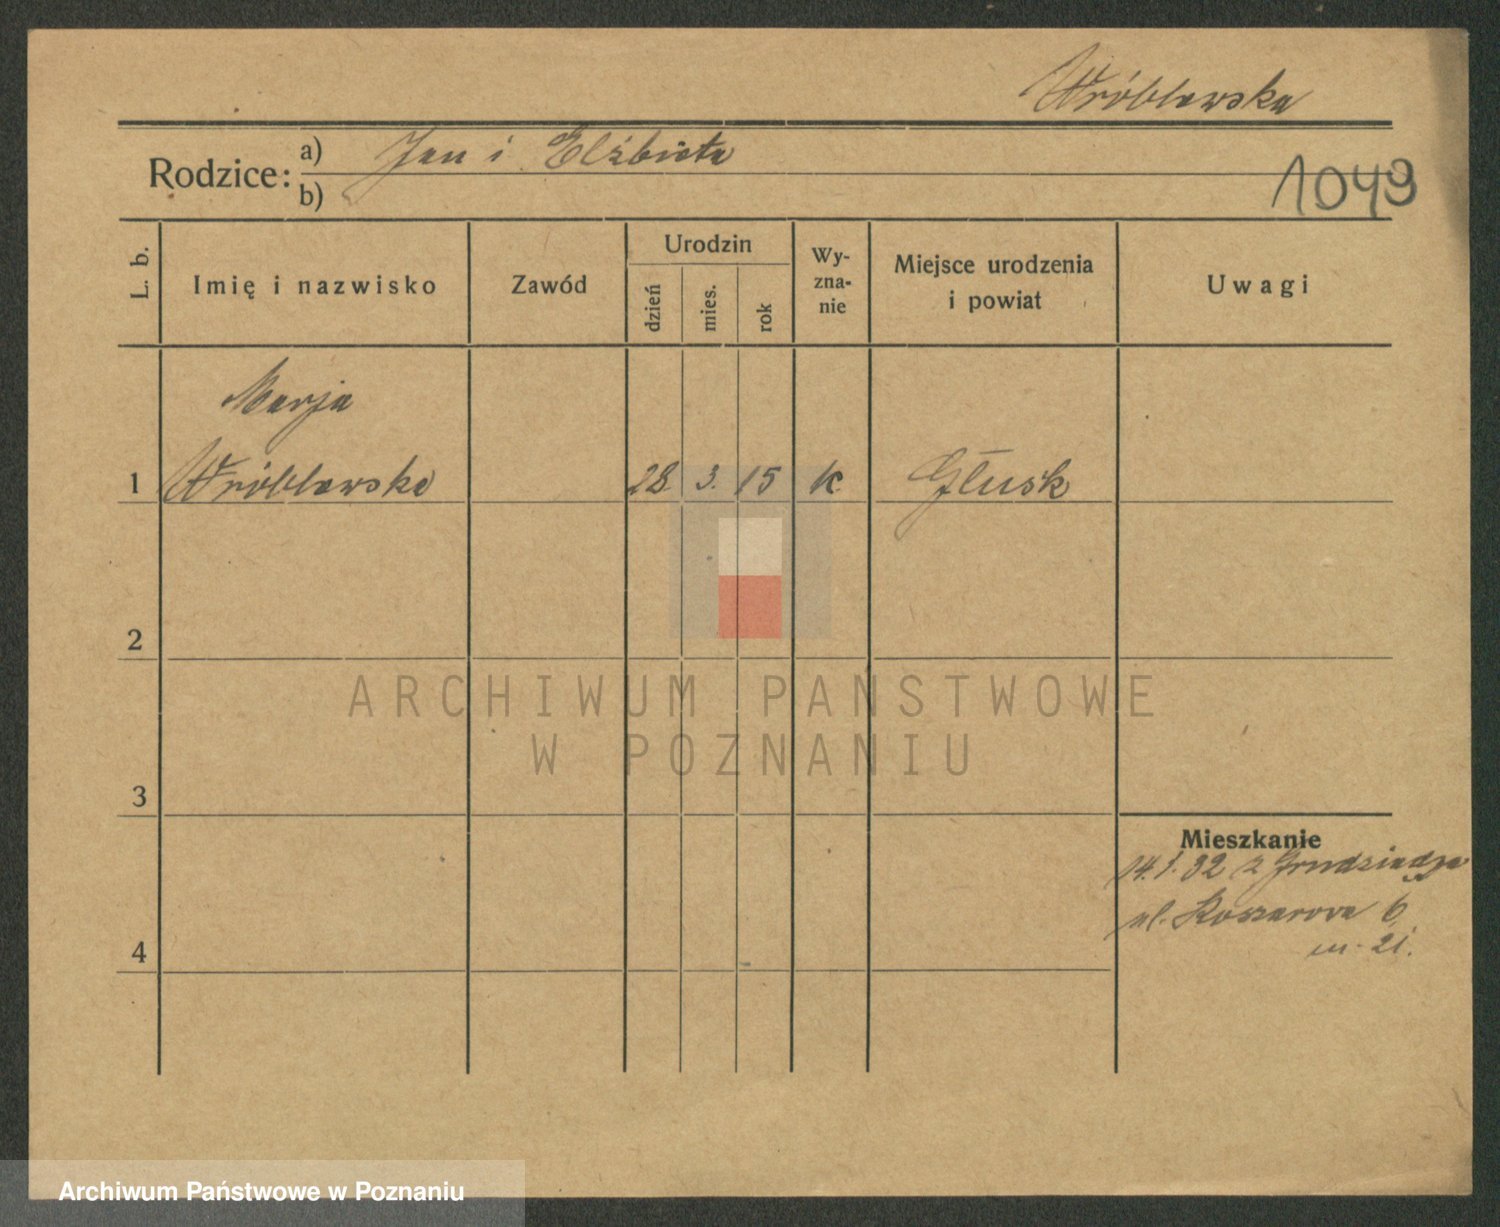 Wróblewska
Rodzice: a) Jan i Elżbieta
b)
1049
L. b. Imię i nazwisko Zawód Urodzin dzień mies. rok Wy-zna-nie Miejsce urodzenia i powiat Uwagi
Marja
1 Wróblewska 28 3. 15 k. Głusk
2
3
Mieszkanie
14.1.32 z Grudziądza
ul. Koszarova 6
4
m. 21.
ARCHIWUM PAŃSTWOWE
W POZNANIU
Archiwum Państwowe w Poznaniu